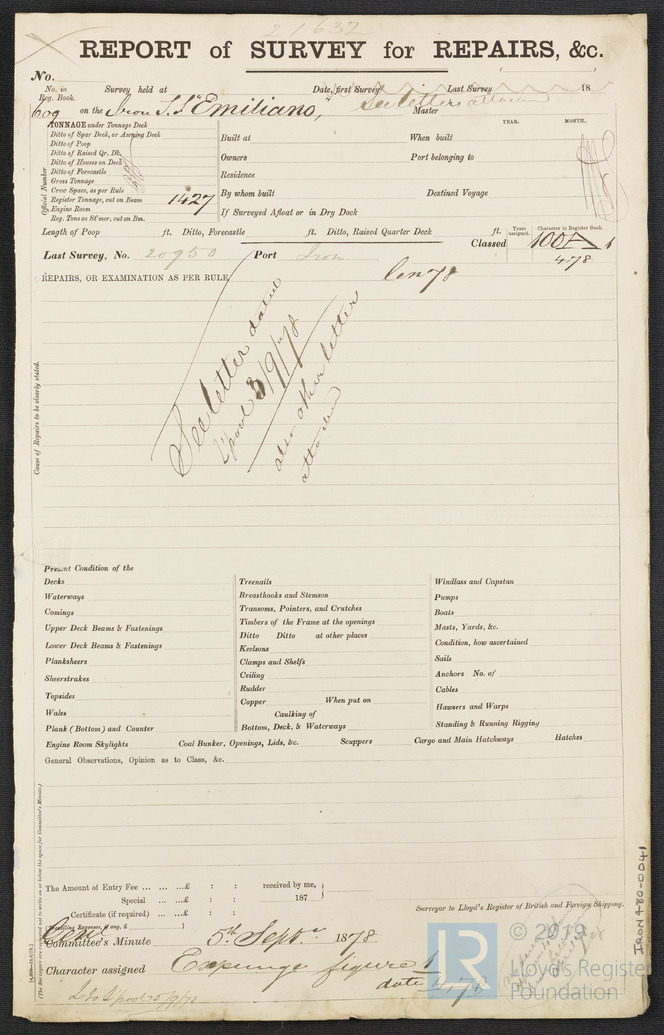 21632
REPORT of SURVEY for REPAIRS, &c.
No.
No. in Reg. Book. Survey held at Date, first Survey Last Survey 18
609 on the Iron S.S "Emiliano," Master See letters attached
TONNAGE under Tonnage Deck
Ditto of Spar Deck, or Awning Deck
Ditto of Poop
Ditto of Raised Qr. Dk.
Ditto of Houses on Deck
Ditto of Forecastle
Gross Tonnage
Crew Space, as per Rule
Register Tonnage, cut on Beam 1427
Engine Room
Reg. Tons as St'mer, cut on Bm.
Official Number
YEAR. MONTH.
Built at When built
Owners Port belonging to
Residence
By whom built Destined Voyage
If Surveyed Afloat or in Dry Dock
Length of Poop ft. Ditto, Forecastle ft. Ditto, Raised Quarter Deck ft.
Years assigned. Character in Register Book.
Classed 100A 1
4,78
Last Survey, No. 20950 Port Iron
REPAIRS, OR EXAMINATION AS PER RULE
Cause of Repairs to be clearly stated.
See letter dated
L'pool 3/9/78
also other letter
attached
Present Condition of the
Decks
Waterways
Comings
Upper Deck Beams & Fastenings
Lower Deck Beams & Fastenings
Planksheers
Sheerstrakes
Topsides
Wales
Plank (Bottom) and Counter
Treenails
Breasthooks and Stemson
Transoms, Pointers, and Crutches
Timbers of the Frame at the openings
Ditto Ditto at other places
Keelsons
Clamps and Shelfs
Ceiling
Rudder
Copper When put on
Caulking of
Bottom, Deck, & Waterways
Windlass and Capstan
Pumps
Boats
Masts, Yards, &c.
Condition, how ascertained
Sails
Anchors No. of
Cables
Hawsers and Warps
Standing & Running Rigging
Engine Room Skylights Coal Bunker, Openings, Lids, &c. Scuppers Cargo and Main Hatchways Hatches
General Observations, Opinion as to Class, &c.
The Amount of Entry Fee ... ... ...£ : : received by me,
Special ... ...£ : : 187
Certificate (if required) ... ...£ : :
(Travelling Expenses, if any, £ )
Surveyor to Lloyd's Register of British and Foreign Shipping.
Committee's Minute 5th Septr 1878
Character assigned Expunge figure 1
date 4,78
IRON 480-0041
© 2019
LR
Lloyd's Register
Foundation